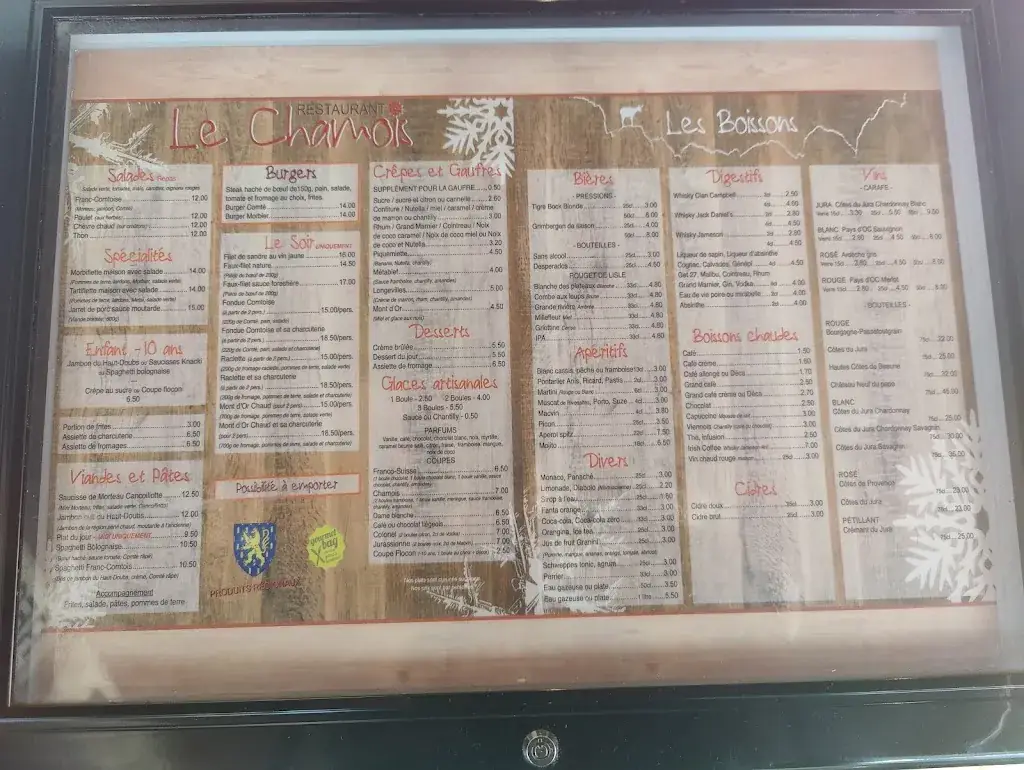 RESTAURANT
Le Chamois
Salades Repas
Salade verte, tomates, maïs, carottes, oignons rouges
Franc-Comtoise 12.00
(Morteau, jambon, Comté)
Poulet (aux herbes) 12.00
Chèvre chaud (sur croûtons) 12.00
Thon 12.00
Spécialités
Morbiflette maison avec salade 14.00
(Pommes de terre, lardons, Morbier, salade verte)
Tartiflette maison avec salade 14.00
(Pommes de terre, lardons, salade verte)
Jarret de porc sauce moutarde 15.00
Enfant - 10 ans
Jambon du Haut-Doubs ou Saucisses Knacki
ou Spaghetti bolognaise
Crêpe au sucre ou Coupe flocon
6.50
Portion de frites 3.00
Assiette de charcuterie 6.50
Assiette de fromages 6.50
Viandes et Pâtes
Saucisse de Morteau Cancoillotte 12.50
Jambon cuit du Haut-Doubs 12.00
Plat du jour - MIDI UNIQUEMENT 9.50
Spaghetti Bolognaise 10.50
(Bœuf haché, sauce tomate, Comté râpé)
Spaghetti Franc-Comtois 10.50
(Dés de jambon du Haut-Doubs, crème, Comté râpé)
Accompagnement
Frites, salade, pâtes, pommes de terre
Burgers
Steak haché de bœuf de150g, pain, salade,
tomate et fromage au choix, frites.
Burger Comté 14.00
Burger Morbier 14.00
Le Soir UNIQUEMENT
Filet de sandre au vin jaune 16.00
Faux-filet nature 14.50
(Pièce de bœuf de 200g)
Faux-filet sauce forestière 17.00
(Pièce de bœuf de 200g)
Fondue Comtoise
(à partir de 2 pers.) 15.00/pers.
(200g de Comté, pain, salade)
Fondue Comtoise et sa charcuterie
(à partir de 2 pers.) 18.50/pers.
(200g de Comté, pain, salade et charcuterie)
Raclette (à partir de 2 pers.) 15.00/pers.
(200g de fromage raclette, pommes de terre, salade verte)
Raclette et sa charcuterie
(à partir de 2 pers.) 18.50/pers.
(200g de fromage, pommes de terre, salade et charcuterie)
Mont d'Or Chaud (pour 2 pers.) 15.00/pers.
Mont d'Or Chaud et sa charcuterie
(pour 2 pers.) 18.50/pers.
Possibilité à emporter
gourmet bag
PRODUITS
Crêpes et Gaufres
SUPPLÉMENT POUR LA GAUFRE 0.50
Sucre / sucre et citron ou cannelle 2.60
Confiture / Nutella / miel / caramel / crème
de marron ou chantilly 3.00
Rhum / Grand Marnier / Cointreau / Noix
de coco caramel / Noix de coco miel ou Noix
de coco et Nutella 3.20
Piquemiette 4.50
(Banane, Nutella, chantilly)
Métabief 4.00
Longevilles 5.00
(Crème de marron, rhum, chantilly, amandes)
Mont d'Or 4.50
(Miel et glace aux noix)
Desserts
Crème brûlée 5.50
Dessert du jour 5.50
Assiette de fromage 6.50
Glaces artisanales
1 Boule - 2.50 2 Boules - 4.00
3 Boules - 5.50
Sauce ou Chantilly - 0.50
PARFUMS
Vanille, café, chocolat, chocolat blanc, noix, myrtille,
noix de coco
COUPES
Franco-Suisse 6.50
Chamois 7.00
Dame blanche 6.50
Café ou chocolat liégeois 6.50
Colonel (2 boules citron, 2cl de Vodka) 7.00
Jurassienne (2 boules noix, 2cl de Macvin) 7.00
Coupe Flocon
Les Boissons
Bières
- PRESSIONS -
Tigre Bock Blonde 25cl 3.00
50cl 6.00
Grimbergen de saison 25cl 4.00
50cl 8.00
- BOUTEILLES -
Sans alcool 25cl 3.00
Desperados 33cl 4.50
ROUGET DE LISLE
Blanche des plateaux 33cl 4.80
Combe aux loups 33cl 4.80
Grande rivière 33cl 4.80
Millefleur 33cl 4.80
Griottine 33cl 4.80
IPA 33cl 4.80
Apéritifs
Blanc cassis, pêche ou framboise 13cl 3.00
Pontarlier Anis, Ricard, Pastis 2cl 3.00
Martini Rouge ou Blanc 5cl 3.00
Muscat de Rivesaltes, Porto, Suze 4cl 3.00
Macvin 4cl 3.80
Picon 25cl 3.50
Aperol spitz 7.50
Mojito 6.50
Divers
Monaco, Panaché 25cl 3.00
Limonade, Diabolo 25cl 2.20
Sirop à l'eau 1.60
Fanta orange 3.00
Coca-cola, Coca-cola zéro 33cl 3.00
Orangina, Ice tea 25cl 3.00
Jus de fruit Granini 25cl 3.00
Schweppes tonic, agrum 25cl 3.00
Perrier 33cl 3.00
Eau gazeuse ou plate 50cl 3.50
Eau gazeuse ou plate 1 litre 5.50
Digestifs
Whisky Clan Campbell 2cl 2.50
4cl 4.00
Whisky Jack Daniel's 2cl 2.50
4cl 4.50
Whisky Jameson 2cl 2.50
4cl 4.50
Liqueur de sapin, Liqueur d'absinthe
Cognac, Calvados, Génépi 4cl 4.50
Get 27, Malibu, Cointreau, Rhum
Grand Marnier, Gin, Vodka 4cl 4.00
Eau de vie poire ou mirabelle 4cl 4.00
Absinthe 2cl 3.00
Boissons chaudes
Café 1.50
Café crème 1.60
Café allongé ou Déca 1.70
Grand café 2.50
Grand café crème ou Déca 2.70
Chocolat 2.50
Capuccino 3.00
Viennois 3.00
Thé, Infusion 2.50
Irish Coffee 7.00
Vin chaud rouge 25cl 3.00
Cidres
Cidre doux 25cl 3.00
Cidre brut 25cl 3.00
Vins
- CARAFE -
JURA Côtes du Jura Chardonnay Blanc
BLANC Pays d'OC Sauvignon
ROSÉ Ardèche gris
ROUGE Pays d'OC Merlot
- BOUTEILLES -
ROUGE
Bourgogne-Passetoutgrain
75cl 22.00
Côtes du Jura
75cl 25.00
Hautes Côtes de Beaune
75cl 32.00
Château Neuf du pape
75cl 45.00
BLANC
Côtes du Jura Chardonnay
75cl 25.00
Côtes du Jura Chardonnay Savagnin
75cl 30.00
Côtes du Jura Savagnin
ROSÉ
Côtes de Provence
75cl 23.00
Côtes du Jura
75cl 23.00
PÉTILLANT
Crémant du Jura
75cl 25.00